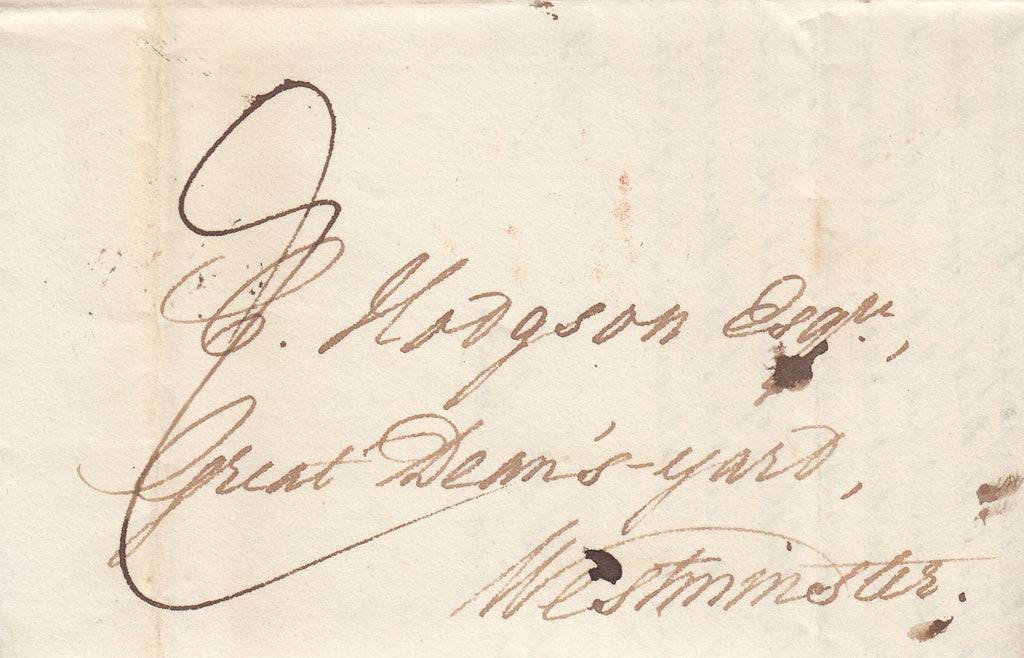 C. Hodgson Esqre,
Great Dean's-yard,
Westminster.